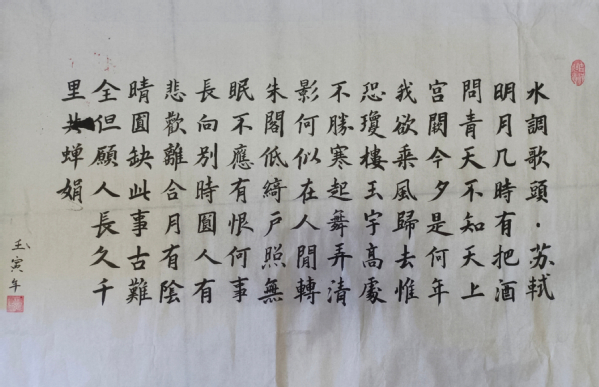 水調歌頭·苏軾
明月几時有把酒
問青天不知天上
宮闕今夕是何年
我欲乘風歸去惟
恐瓊樓玉宇高處
不勝寒起舞弄清
影何似在人間轉
朱閣低綺戶照無
眠不應有恨何事
長向別時圓人有
悲歡離合月有陰
晴圓缺此事古難
全但願人長久千
里共蟬娟
壬寅年